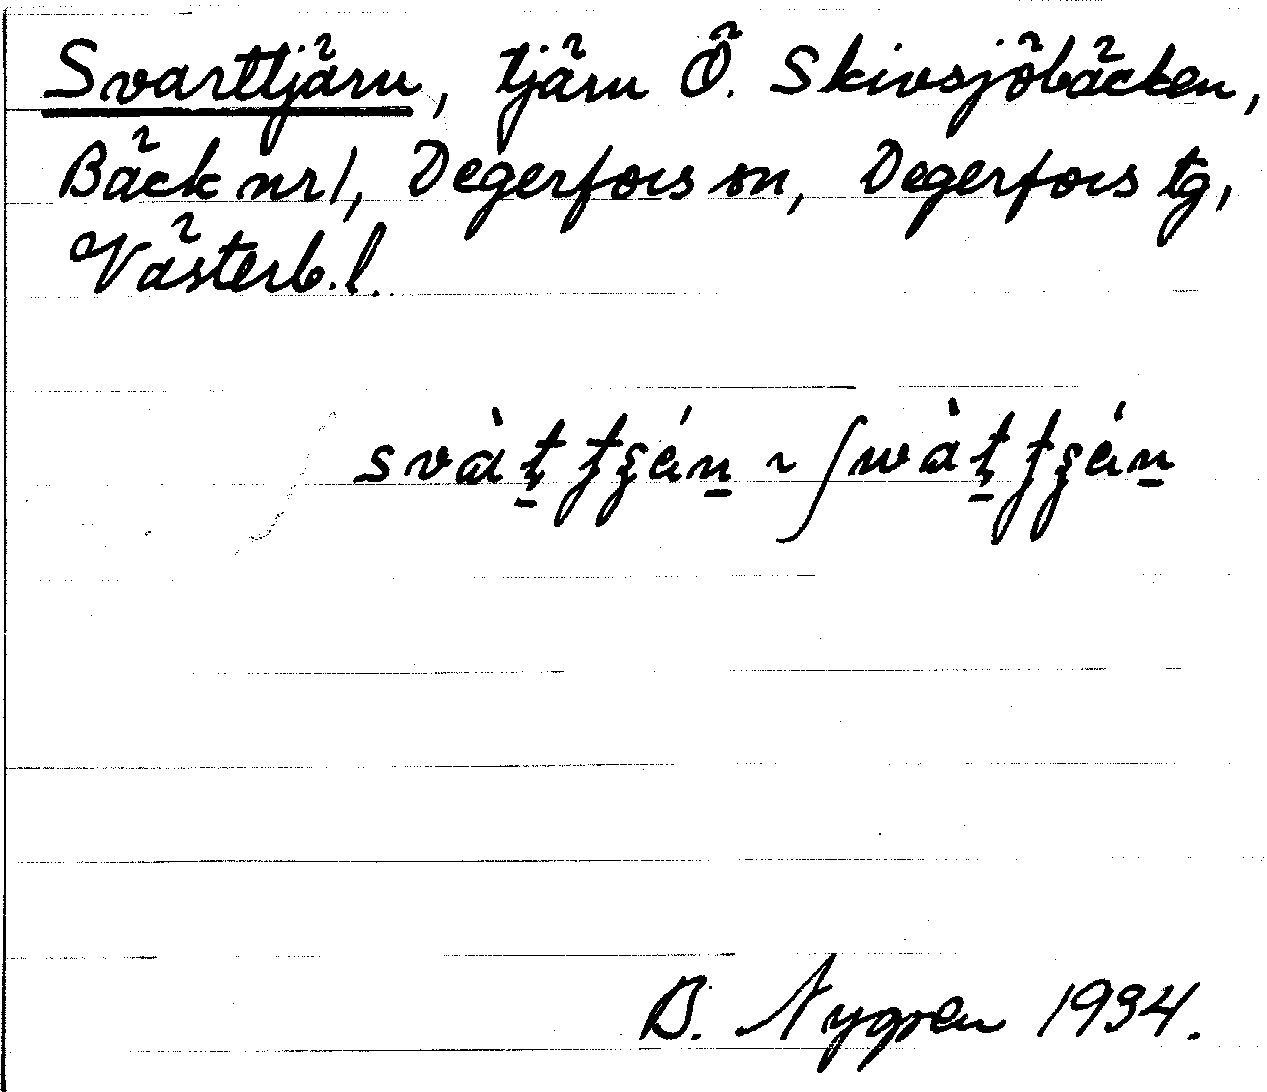 Svarttjärn, tjärn Ö. Skivsjöbäcken,
Bäck nr 1, Degerfors sn, Degerfors tg,
Västerb. l.
B. Nygren 1934.